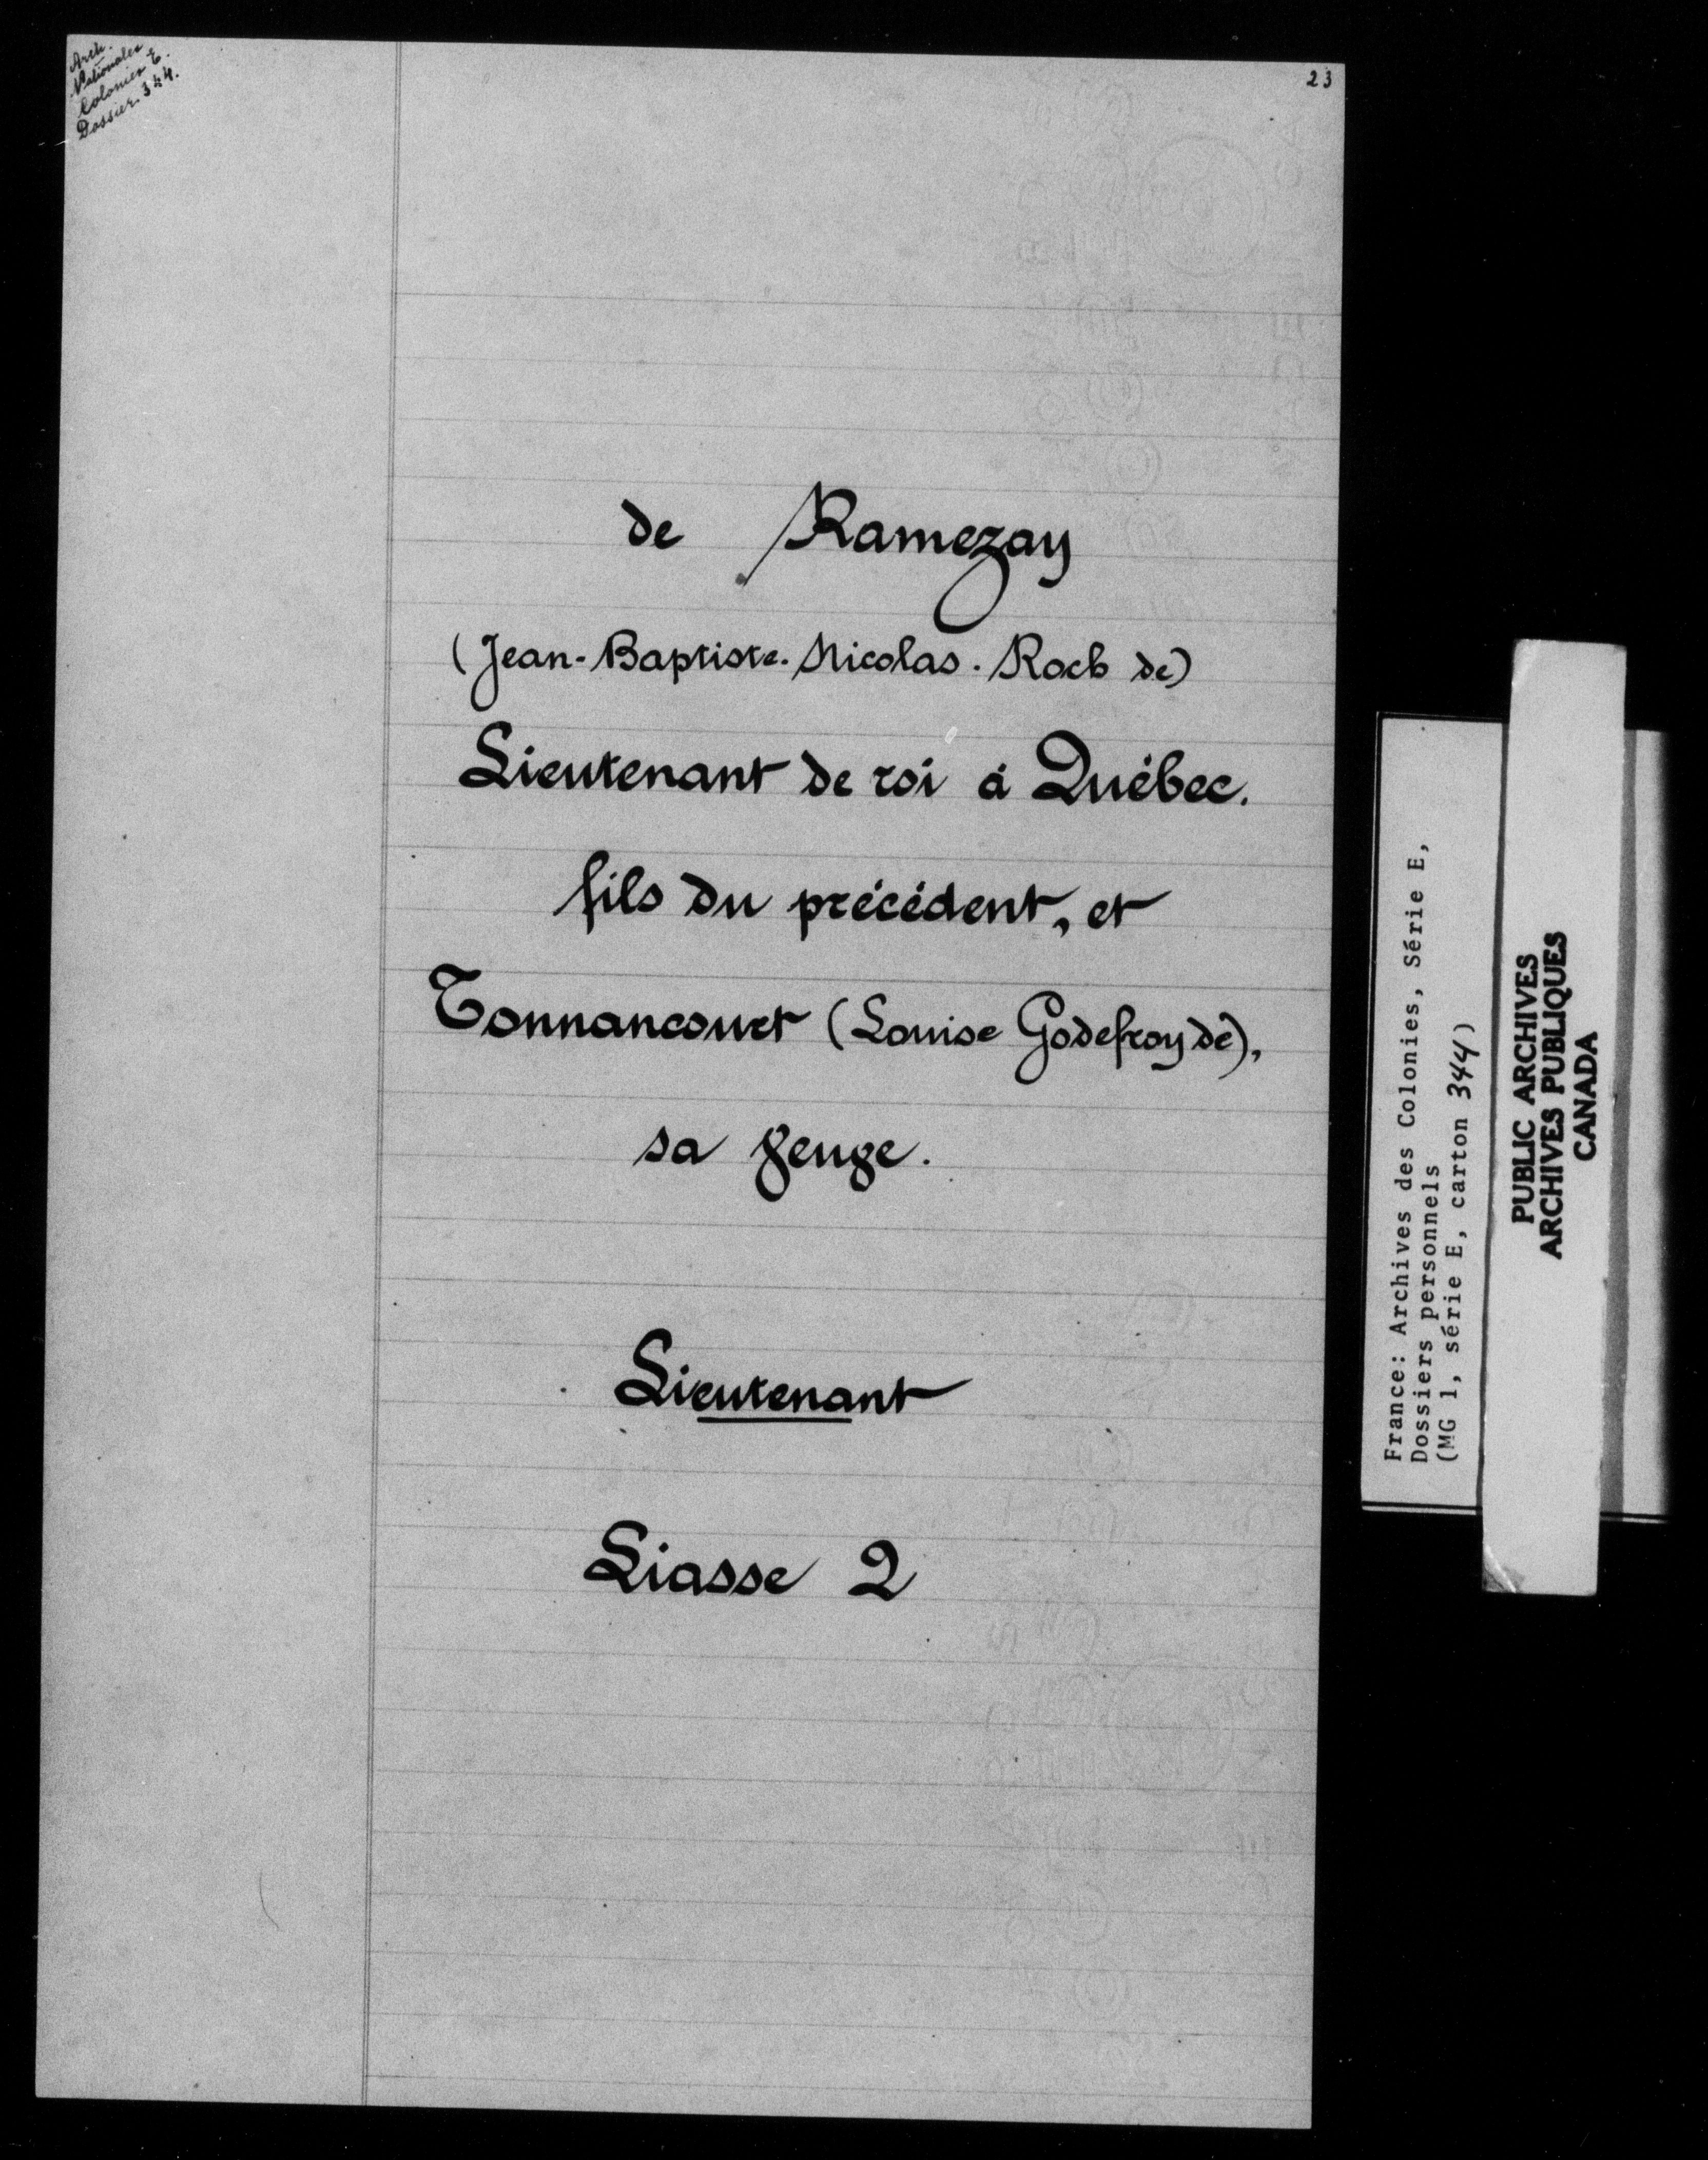 Arch.
Nationales
Colonies E.
Dossier. 344.
23
de Ramezay
(Jean-Baptiste-Nicolas-Roch de)
Lieutenant de roi à Québec.
fils du précédent, et
Tonnancourt (Louise Godefroy de),
sa veuve.
Lieutenant
Liasse 2
France: Archives des Colonies, Série E,
Dossiers personnels
(MG 1, série E, carton 344)
PUBLIC ARCHIVES
ARCHIVES PUBLIQUES
CANADA